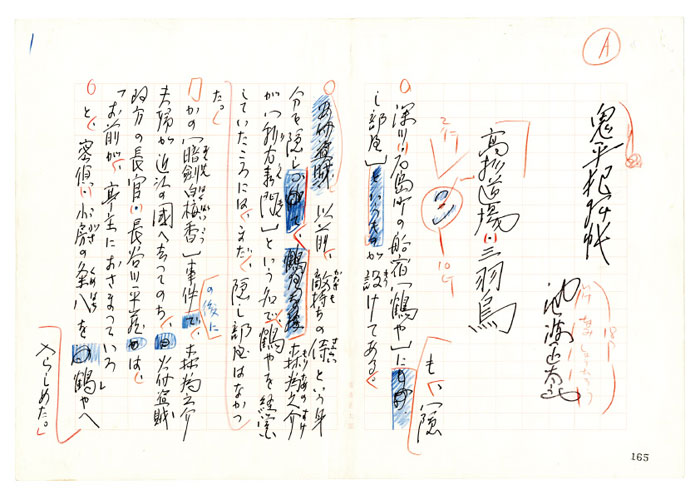 A
1
鬼平犯科帳
池波正太郎
高杉道場・三羽烏
2行
10行
深川・石島町の船宿〔鶴や〕にも、隠
し部屋というものが設けてある。
以前、敵持ちの体という身
分を隠し、森為之介
が〔利右衛門〕という名で〔鶴や〕を経営
していたころには、まだ、隠し部屋はなかっ
た。
かの〔暗剣白梅香〕事件の後に、森為之介
夫婦が近江の国へ去ってのち、火付盗賊
改方の長官・長谷川平蔵は、
「お前が、亭主におさまっていろ」
と、密偵・小房の粂八を鶴やへ
入らしめた。
165